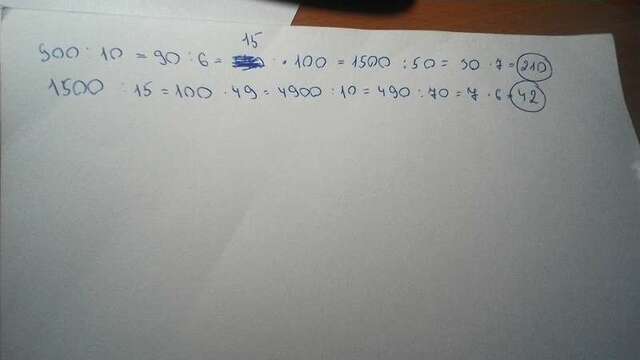 900 : 10 = 90 : 6 = 15 · 100 = 1500 : 50 = 30 · 7 = 210
1500 : 15 = 100 · 49 = 4900 : 10 = 490 : 70 = 7 · 6 = 42